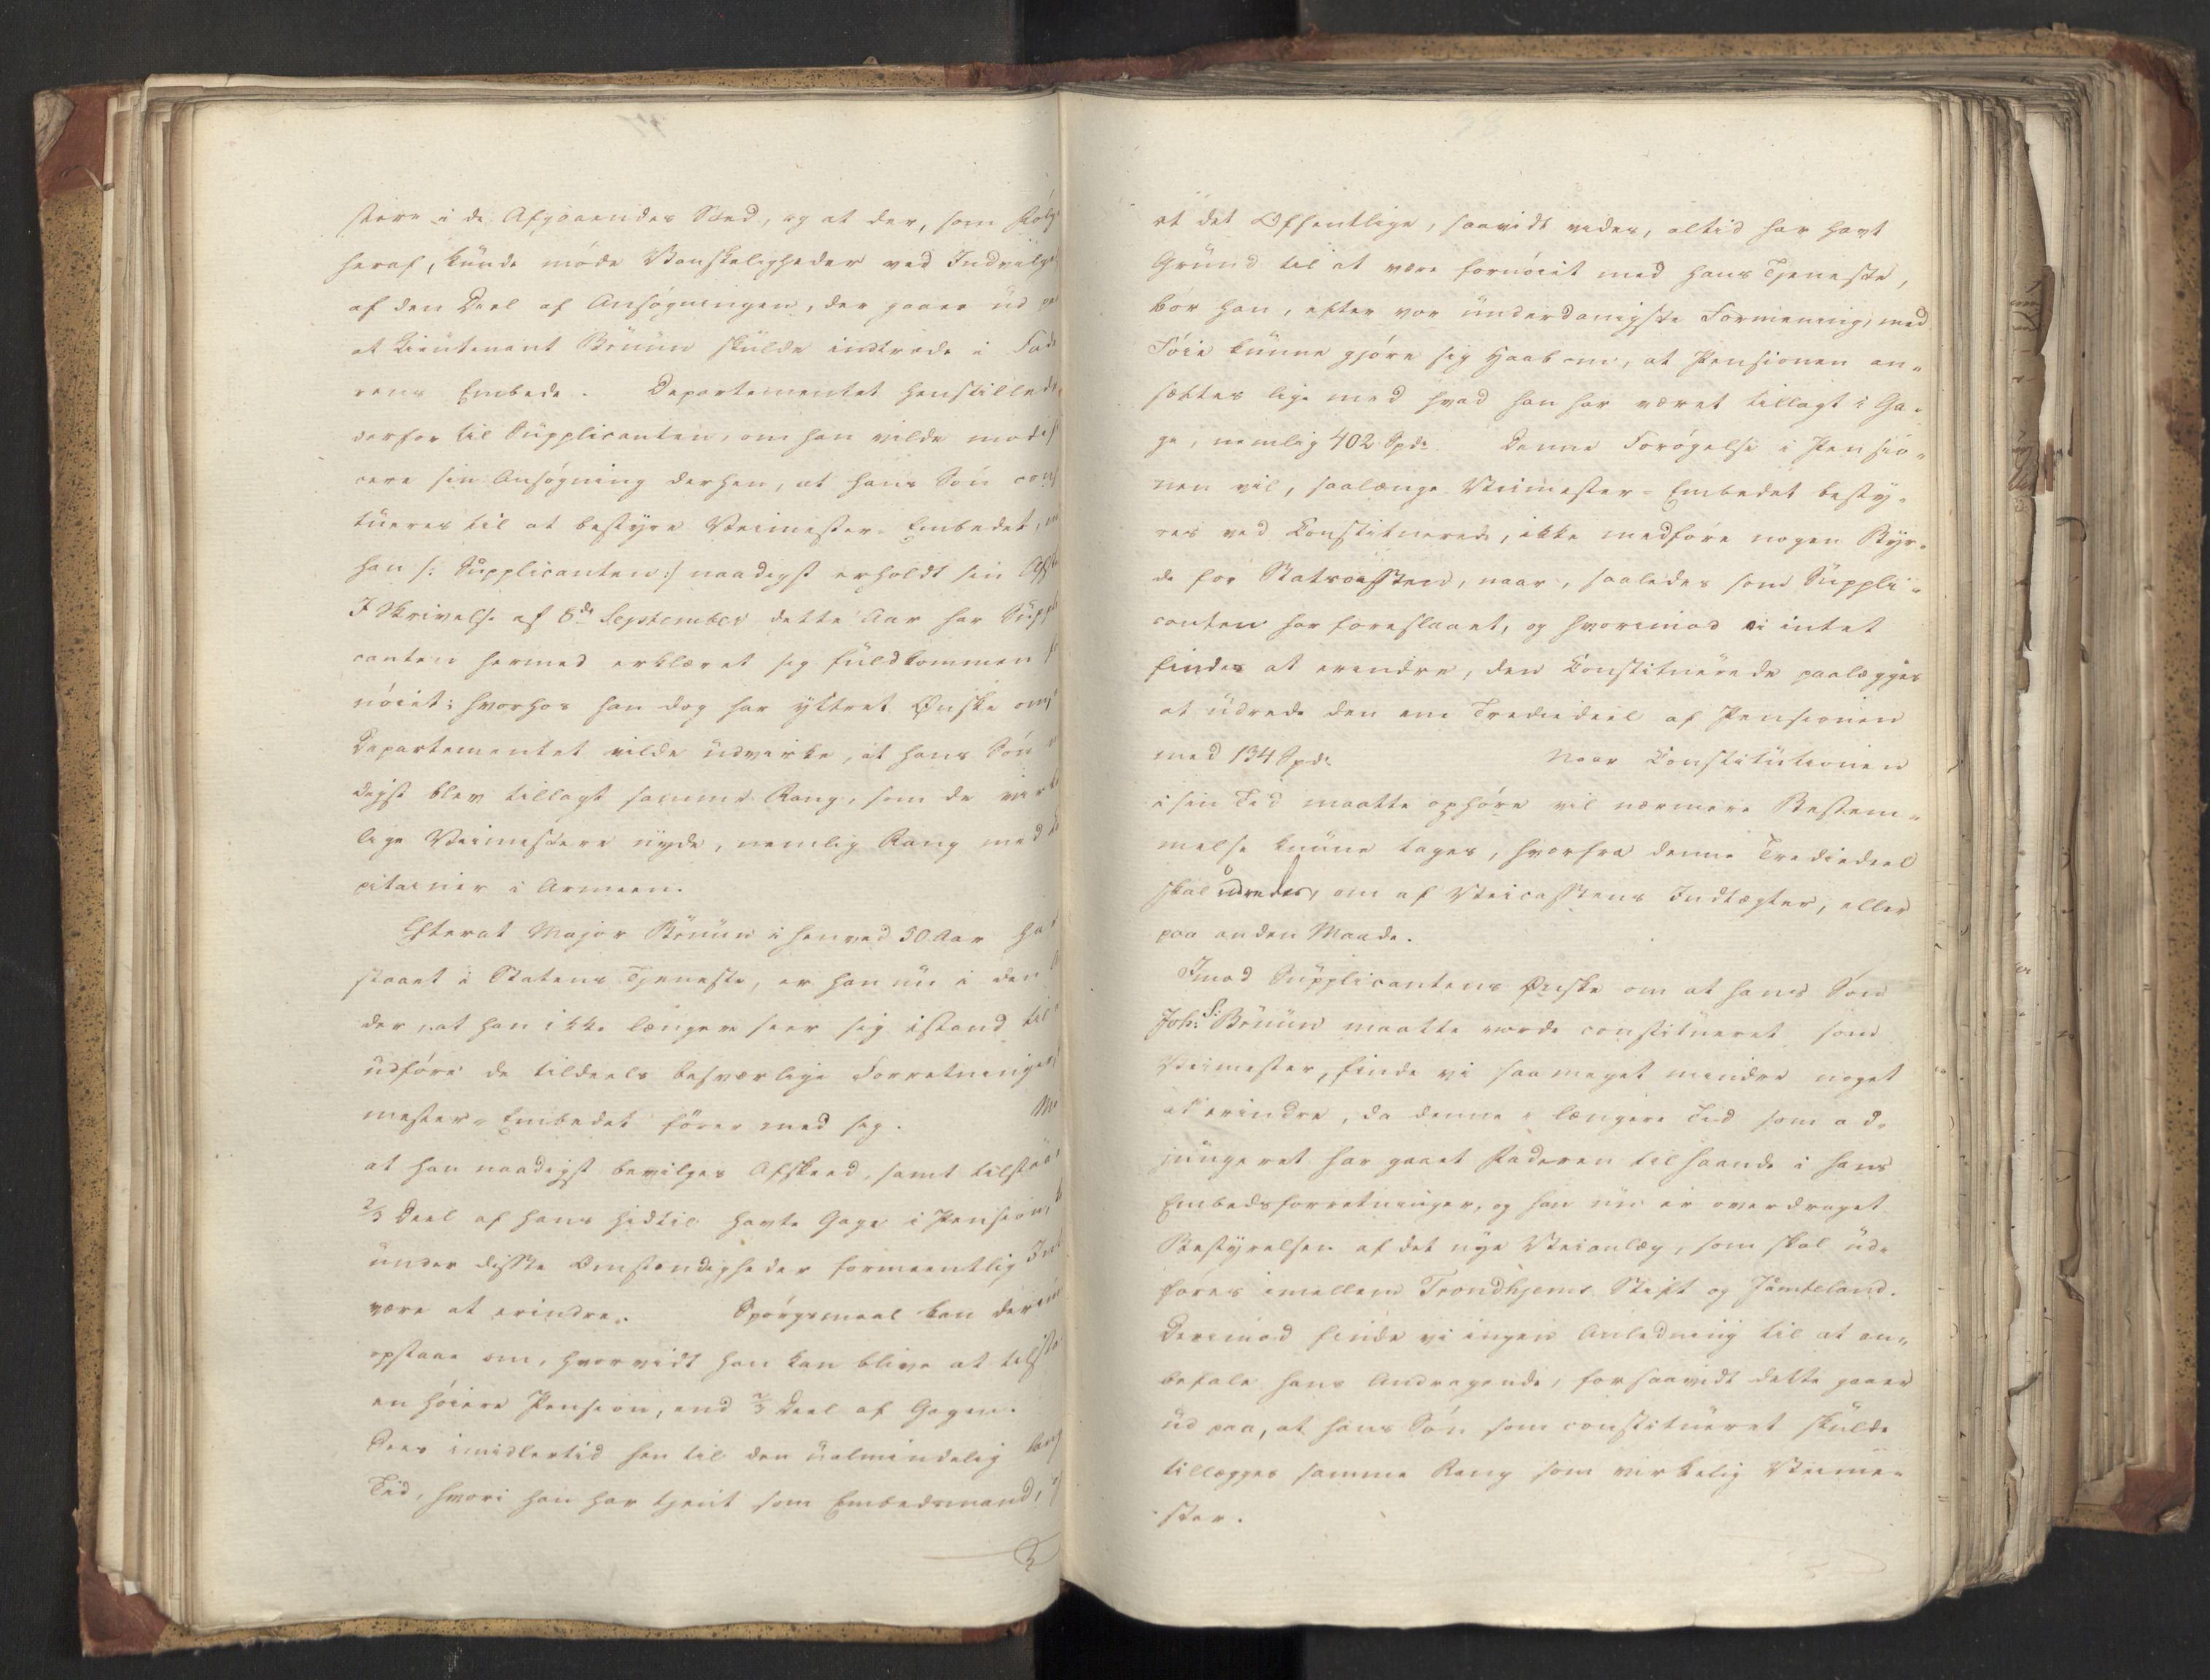 stere i de Afgaaendes Sted, og at der, som Følg
heraf, kunde møde Vanskeligheder ved Indvilge
af den Deel af Ansøgningen, der gaaer ud paa
at Lieutenant Brüün skulde indtræde i Fad
rens Embede. Departementet henstillede
derfor til Supplicanten, om han vilde modif
cere sin Ansøgning derhen, at hans Søn cons
tueres til at bestyre Veimester-Embedet,
han /: Supplicanten :/ naadigst erholdt sin Afsk
I Skrivelse af 8de September dette Aar har Suppl
canten hermed erklæret sig fuldkommen
nøiet; hvorhos han dog har yttret Ønske om,
Departementet vilde udvirke, at hans Søn
digst blev tillagt samme Rang, som de virke
lige Veimestere nyde, nemlig Rang med
pitainer i Armeen.
Efterat Major Brüün i henved 50 Aar ha
staaet i Statens Tjeneste, er han nu i den
der, at han ikke længere seer sig istand til
udføre de tildeels besværlige Forretninger
mester-Embedet fører med sig.
at han naadigst bevilges Afskeed, samt tilstaae
2/3 Deel af hans hidtil havte Gage i Pension,
under disse Omstændigheder formeentlig Int
være at erindre. Spørgsmaal kan derim
opstaae om, hvorvidt han kan blive at tilstaa
en høiere Pension, end 2/3 Deel af Gagen.
Sees imidlertid hen til den ualmindelig lang
Tid, hvori han har tjent som Embedsmand,
at det Offentlige, saavidt vides, altid har havt
Grund til at være fornøiet med hans Tjeneste,
bør han, efter vor underdanigste Formening, med
Føie kunne gjøre sig Haab om, at Pensionen an-
sættes lige med hvad han har været tillagt i Ga-
ge, nemlig 402 Spd. Denne Forøgelse i Pensio-
nen vil, saalænge Veimester-Embedet besty-
res ved Constituerede, ikke medføre nogen Byr-
de for Statscassen, naar, saaledes som Suppli-
canten har foreslaaet, og hvorimod vi intet
finder at erindre, den Constituerede paalægges
at udrede den ene Trediedeel af Pensionen
med 134 Spd. Naar Constitutionen
i sin Tid maatte ophøre vil nærmere Bestem-
melse kunne tages, hvorfra denne Trediedeel
skal udredes, om af Veicassens Indtægter, eller
paa anden Maade.
Imod Supplicantens Ønske om at hans Søn
Joh: S: Brüün maatte vorde constitueret som
Veimester, finde vi saameget mindre noget
at erindre, da denne i længere Tid som ad-
jungeret har gaaet Faderen tilhaande i hans
Embedsforretninger, og han nu er overdraget
Bestyrelsen af det nye Veianlæg, som skal ud-
føres imellem Trondhjems Stift og Jämteland.
Derimod finde vi ingen Anledning til at an-
befale hans Andragende, forsaavidt dette gaaer
ud paa, at hans Søn som constitueret skulde
tillægges samme Rang som virkelig Veime-
ster.